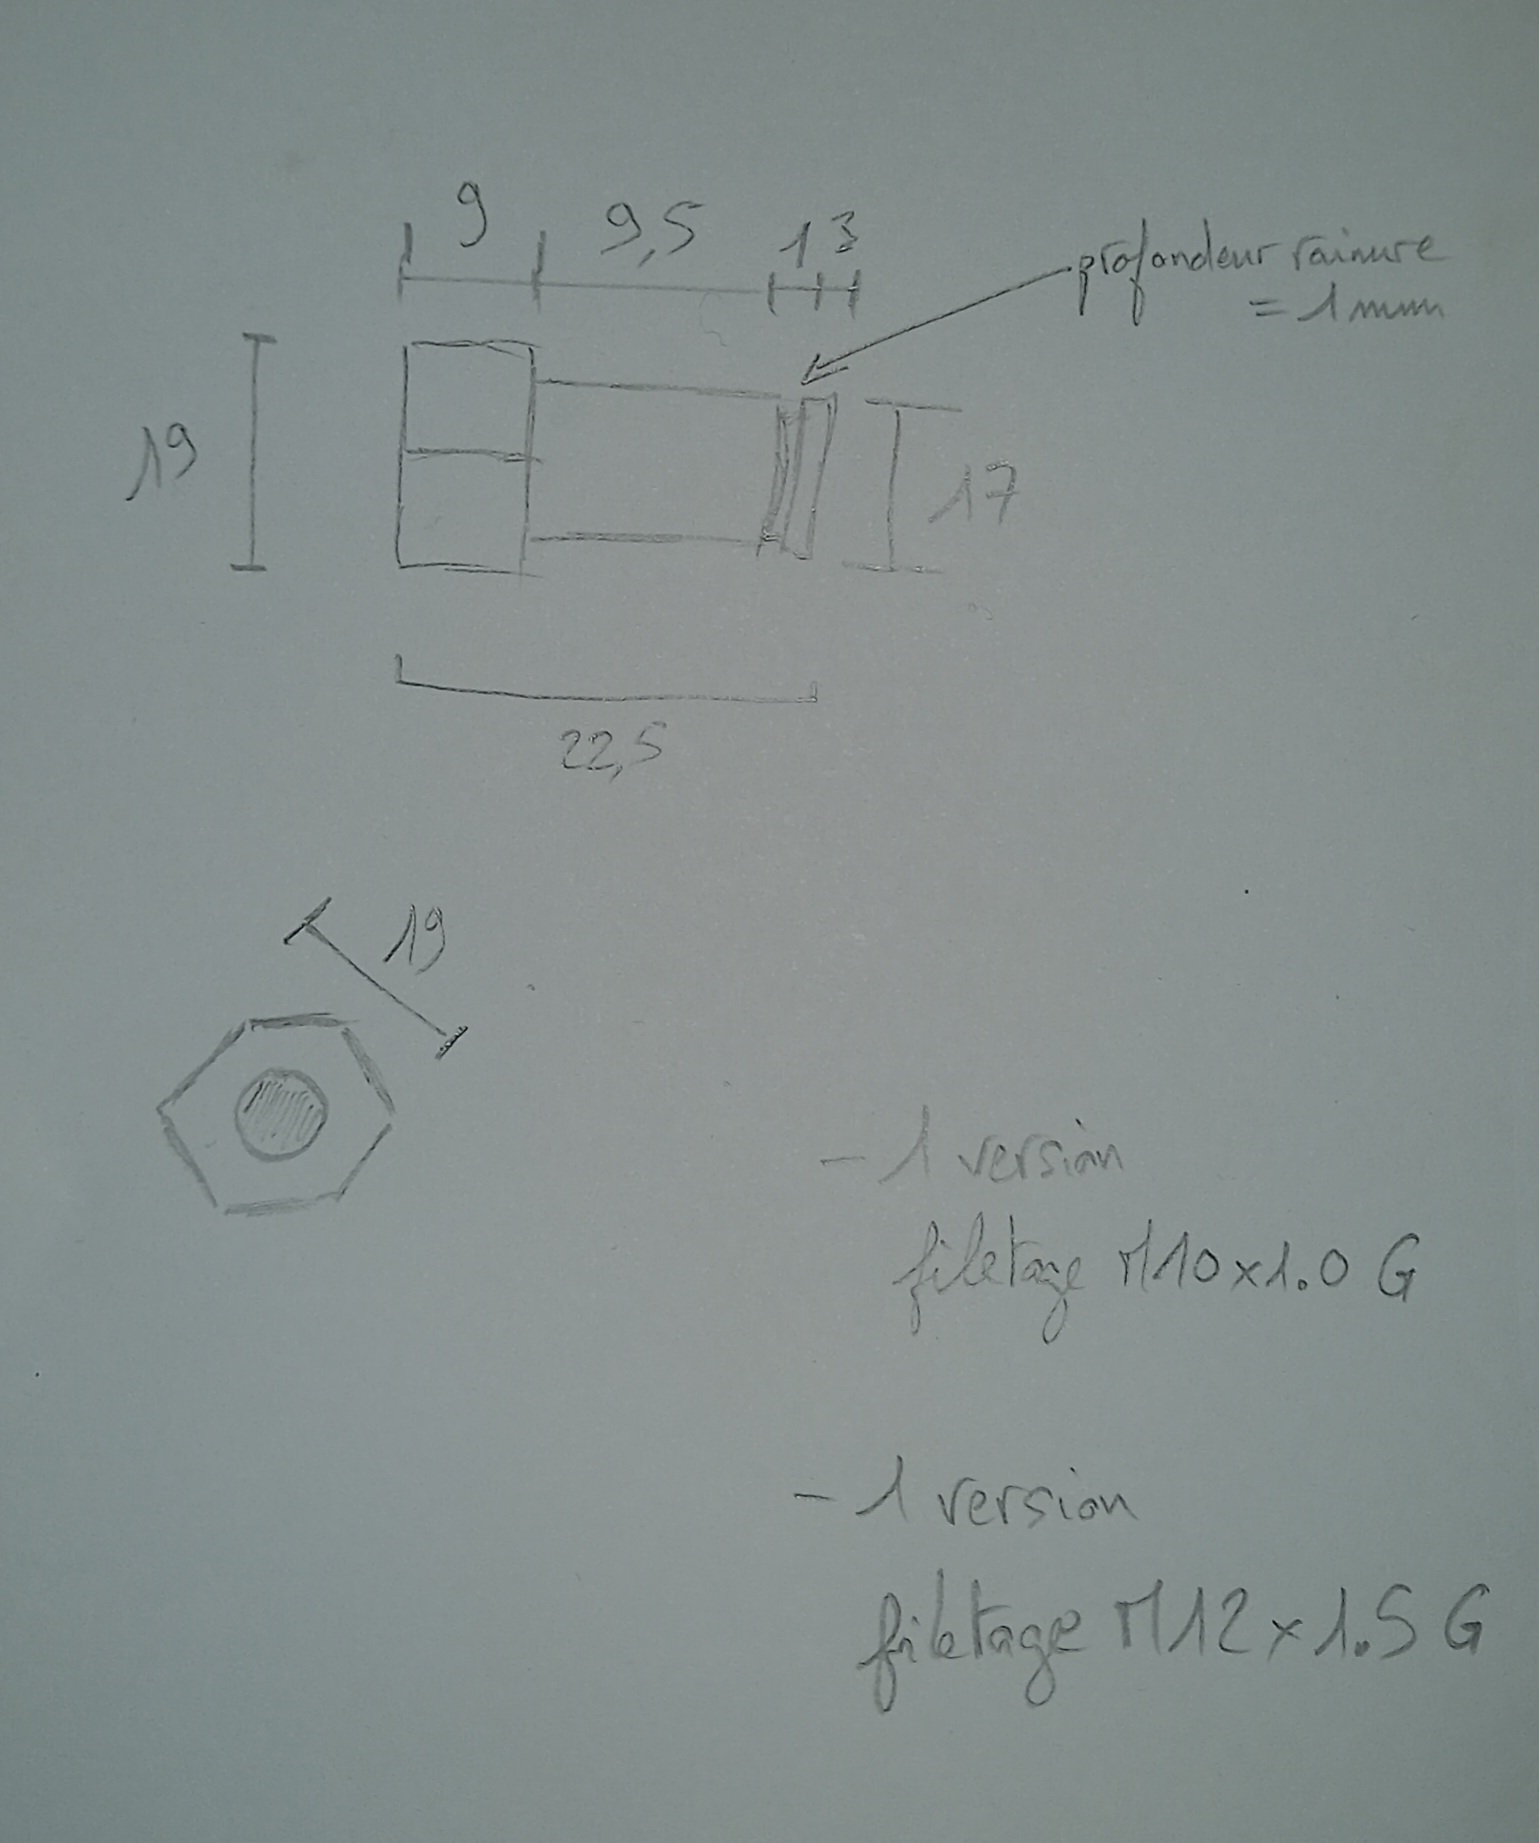 9 9,5 1 3
profondeur rainure
= 1 mm
19
17
22,5
19
- 1 version
filetage M10x1.0 G
- 1 version
filetage M12x1.5 G